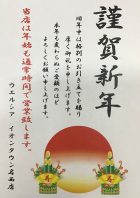 謹賀新年
旧年中は格別のお引き立てを賜り
厚く御礼を申し上げます。
本年も変わらぬご愛顧のほど
よろしくお願い申し上げます。
当店は年始も通常時間で営業致します。
ウエルシア イオンタウン名西店